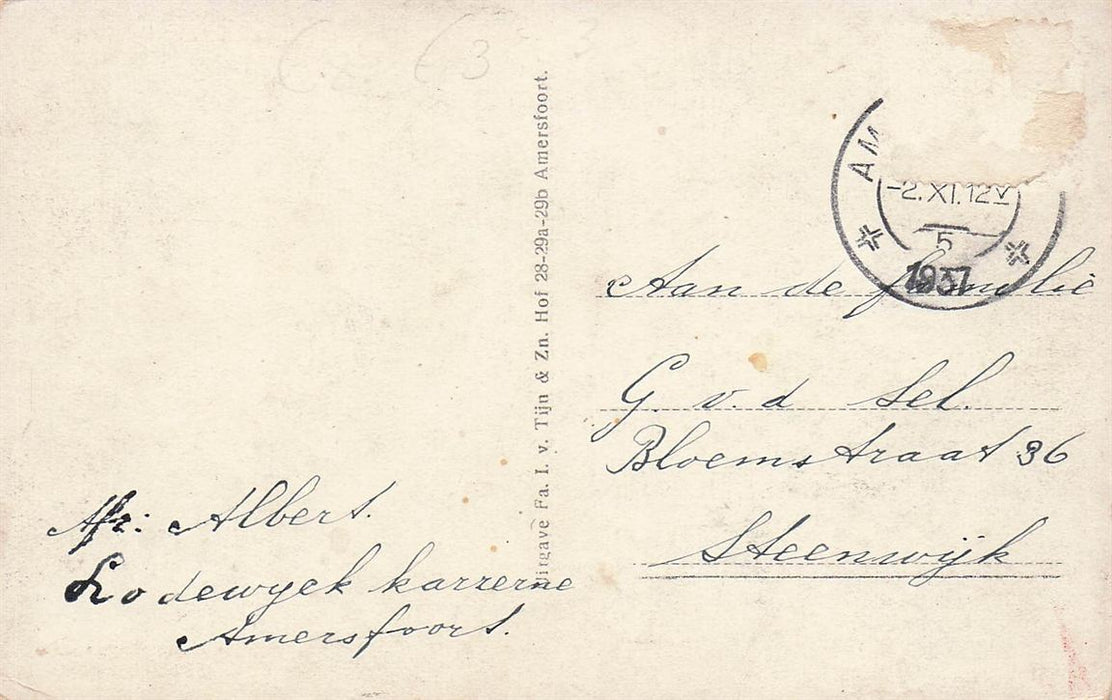 Afz: Albert.
Lodewyck karzerne
Amersfoort.
Uitgave Fa. I. v. Tijn & Zn. Hof 28-29a-29b Amersfoort.
AM
-2.XI.12V
5
1937
Aan de familie
G. v. d Sel.
Bloemstraat 36
Steenwijk